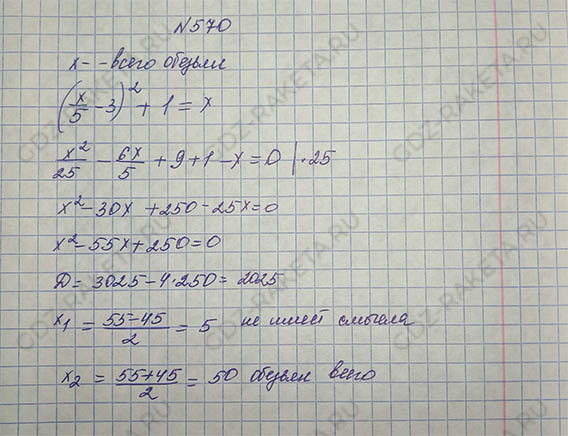 N570
x - - всего обезьян
(x/5 - 3)² + 1 = x
x²/25 - 6x/5 + 9 + 1 - x = 0 | · 25
x² - 30x + 250 - 25x = 0
x² - 55x + 250 = 0
D = 3025 - 4 · 250 = 2025
x₁ = (55 - 45)/2 = 5 не имеет смысла
x₂ = (55 + 45)/2 = 50 обезьян всего
GDZ-RAKETA.RU